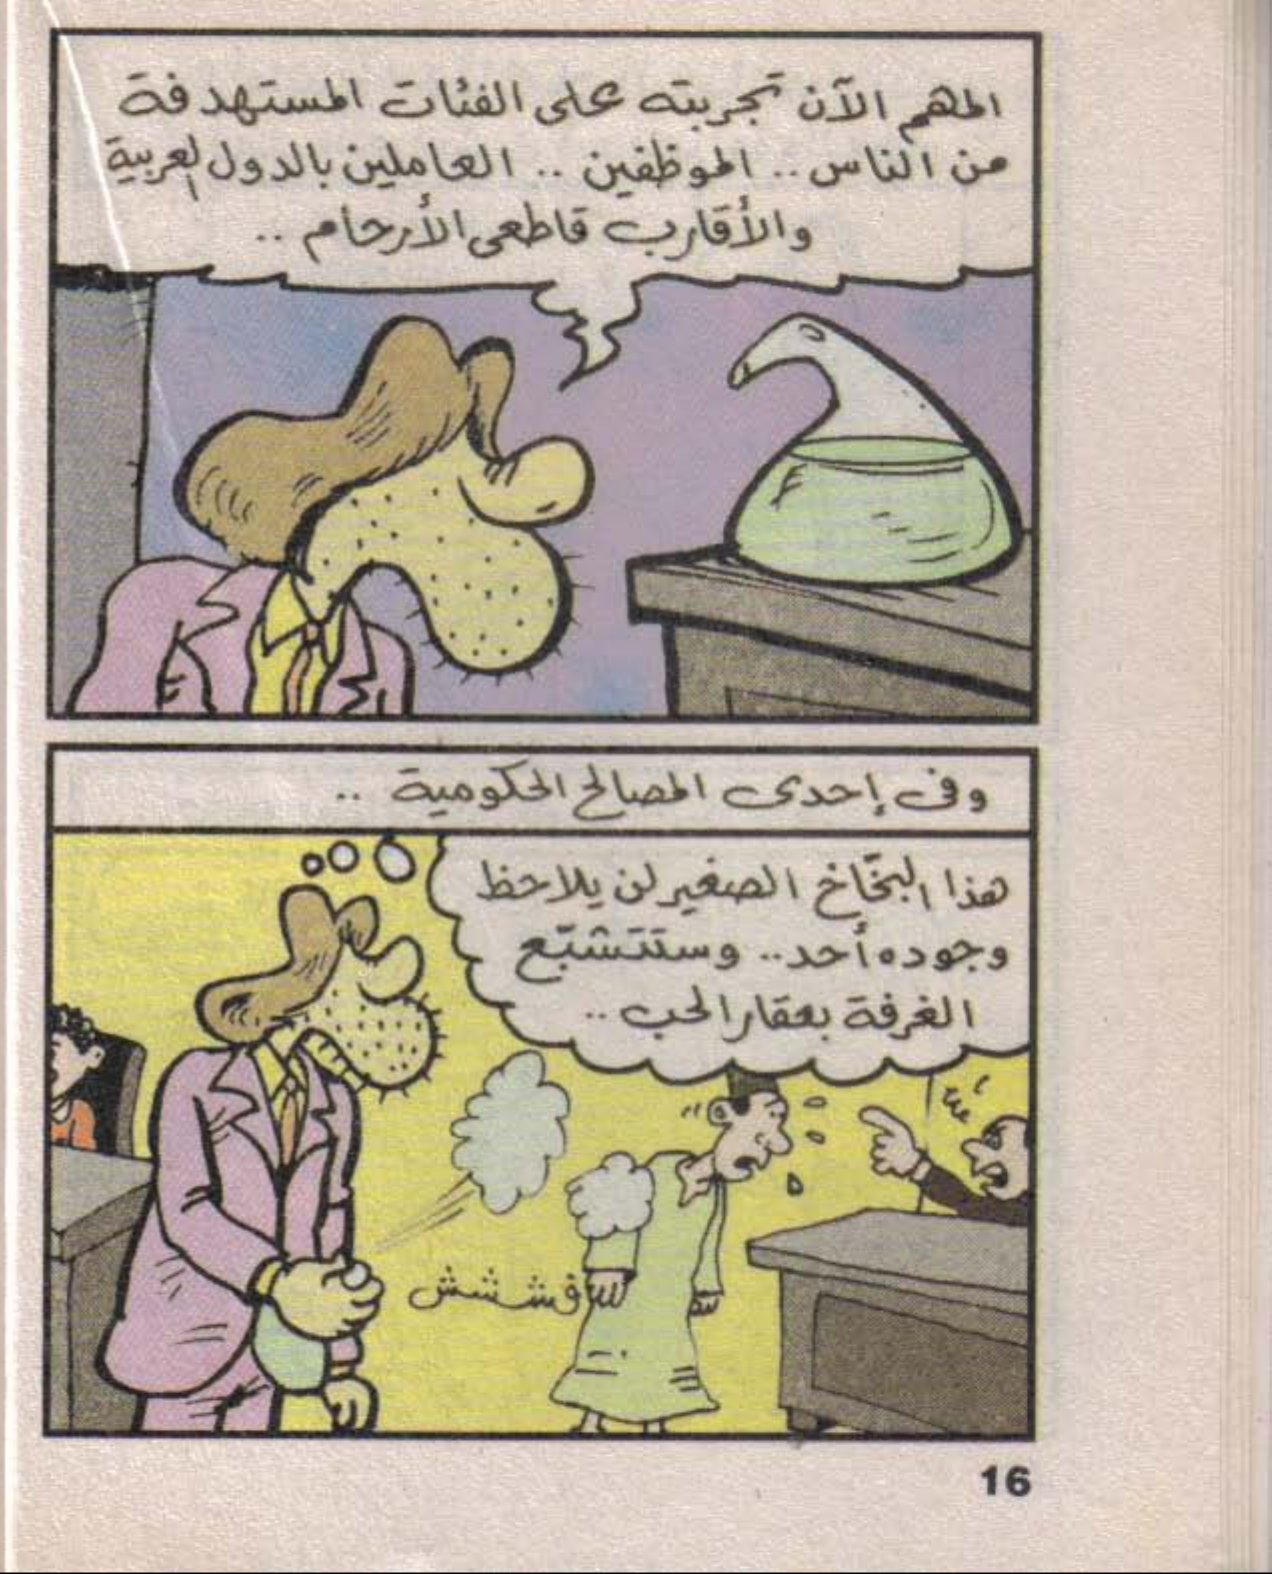 المهم الآن تجربته على الفئات المستهدفة
من الناس .. الموظفين .. العاملين بالدول العربية
والأقارب قاطعى الأرحام ..
وفى إحدى المصالح الحكومية ..
هذا البخّاخ الصغير لن يلاحظ
وجوده أحد .. وستتشبّع
الغرفة بعقار الحب ..
فشششش
16